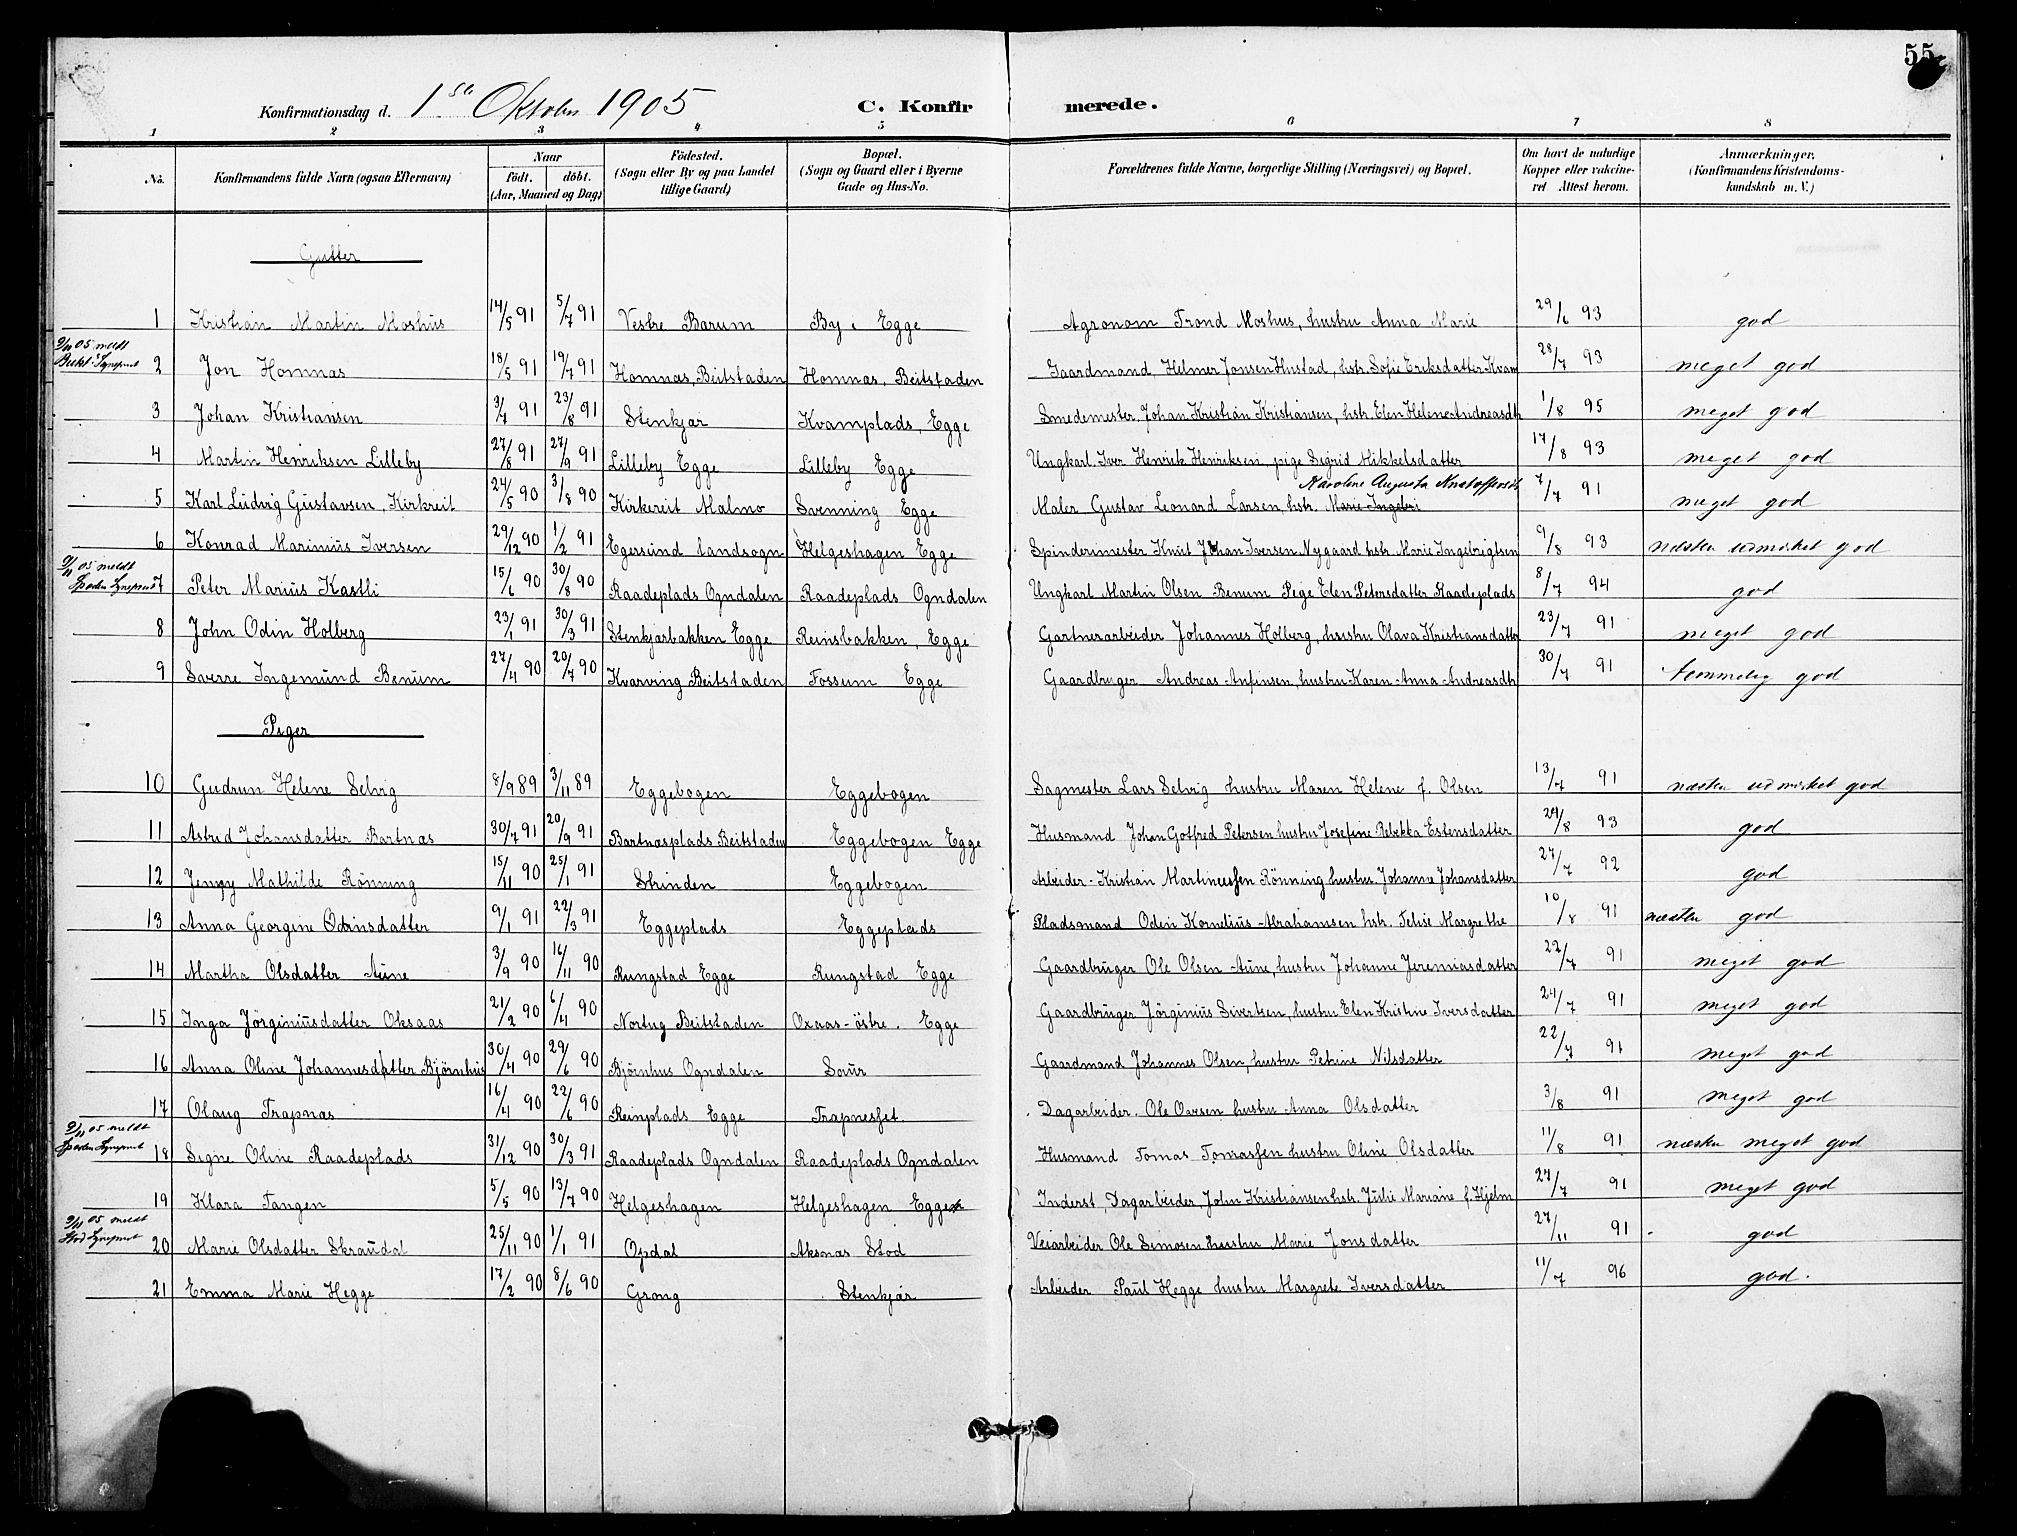 55
Konfirmationsdag d. 1ste Oktober 1905 C. Konfirmerede.
1 2 3 4 5 6 7 8
No. Konfirmandens fulde Navn (ogsaa Efternavn) Naar födt. döbt. (Aar, Maaned og Dag) Födested. (Sogn eller By og paa Landet tillige Gaard) Bopæl. (Sogn og Gaard eller i Byerne Gade og Hus-No.) Forældrenes fulde Navne, borgerlige Stilling (Næringsvei) og Bopæl. Om havt de naturlige Kopper eller vakcineret. Attest herom. Anmærkninger. (Konfirmandens Kristendomskundskab m. V.)
Gutter
1 Kristian Martin Moshus 14/5 91 5/7 91 Vestre Barum By i Egge Agronom Trond Moshus, hustru Anna Marie 29/6 93 god
9/11 05 meldt
2 Jon Homnas 18/5 91 19/7 91 Homnas, Beitstaden Homnas, Beitstaden Gaardmand, Helmer Jonsen Hustad, hstr. Sofie Eriksdatter Kvam 28/7 93 meget god
3 Johan Kristiansen 3/7 91 23/8 91 Stenkjær Kvamplads, Egge Smedemester Johan Kristian Kristiansen, hstr. Elen Helene Andreasdtr 1/8 95 meget god
4 Martin Henriksen Lilleby 27/8 91 27/9 91 Lilleby Egge Lilleby Egge Ungkarl Iver Henrik Henriksen pige Sigrid Mikkelsdatter 17/8 93 meget god
Karoline Augusta
5 Karl Ludvig Gustavsen, Kirkreit 24/5 90 31/8 90 Kirkereit Malmo Svenning Egge Maler Gustav Leonard Larsen, hstr. Marie Ingebri 7/7 91 meget god
6 Konrad Marinius Iversen 29/12 90 1/2 91 Egersund landsogn Helgeshagen Egge Spinderimester Knut Johan Iversen Nygaard hstr. Marie Ingebrigtsen 9/8 93 næsten udmirket god
9/11 05 meldt
7 Peter Marius Kastli 15/6 90 30/8 90 Raadeplads Ogndalen Raadeplads Ogndalen Ungkarl Martin Olsen Benum Pige Elen Petersdatter Raadeplads 8/7 94 god
8 John Odin Holberg 23/1 91 30/3 91 Stenkjærbakken Egge Reinsbakken, Egge Gartnerarbeider Johannes Holberg, hustru Olava Kristiansdatter 23/7 91 meget god
9 Sverre Ingemund Benum 27/4 90 20/7 90 Kvarving Beitstaden Fossum Egge Gaardbruger Andreas Anfinsen, hustru Karen Anna Andreasdtr 30/7 91 temmelig god
Piger
10 Gudrun Helene Selvig 8/9 89 3/11 89 Eggebogen Eggebogen Sagmester Lars Selvig hustru Maren Helene f. Olsen 13/7 91 næsten udmirket god
11 Astrid Johansdatter Bartnas 30/7 91 20/9 91 Bartnasplads Beitstaden Eggebogen Egge Husmand Johan Gotfred Petersen hustru Josefine Rebekka Estensdatter 24/8 93 god
12 Jenny Mathilde Rönning 15/11 90 25/1 91 Strinden Eggebogen Arbeider Kristian Martineussen Rönning hustru Johanne Johansdatter 27/7 92 god
13 Anna Georgine Odinsdatter 9/1 91 22/3 91 Eggeplads Eggeplads Pladsmand Odin Kornelius Abrahamsen hstr. Felise Margrethe 10/8 91 næsten god
14 Martha Olsdatter Aune 3/9 90 16/11 90 Rungstad Egge Rungstad Egge Gaardbruger Ole Olsen Aune, hustru Johanne Jeremiasdatter 22/7 91 meget god
15 Inga Jörginiusdatter Oksaas 21/2 90 6/4 90 Nortug Beitstaden Oxaas-östre. Egge Gaardbruger Jörginius Sivertsen, hustru Elen Kristine Iversdatter 24/7 91 meget god
16 Anna Oline Johannesdatter Björnhus 30/4 90 29/6 90 Bjørnhus Ogndalen Saur Gaardmand Johannes Olsen, hustru Petrine Nilsdatter 22/7 91 meget god
17 Olaug Trapnas 16/4 90 22/6 90 Reinplads Egge Trapnesset Dagarbeider. Ole Ovesen hustru Anna Olsdatter 3/8 91 meget god
9/11 05 meldt
18 Signe Oline Raadeplads 31/12 90 30/3 91 Raadeplads Ogndalen Raadeplads Ogndalen Husmand Tomas Tomassen hustru Oline Olsdatter 11/8 91 næsten meget god
19 Klara Tangen 5/5 90 13/7 90 Helgeshagen Helgeshagen Egge Inderst, Dagarbeider, John Kristiansen hstr. Julie Mariane f. Hjelm 27/7 91 meget god
9/11 05 meldt
20 Marie Olsdatter Skraudal 25/11 90 1/1 91 Opdal Aksnas Stod Veiarbeider Ole Simosen hustru Marie Jonsdatter 27/11 91 god
21 Emma Marie Hegge 17/2 90 8/6 90 Grong Stenkjær Arbeider Paul Hegge hustru Margrete Iversdatter 11/7 96 god.